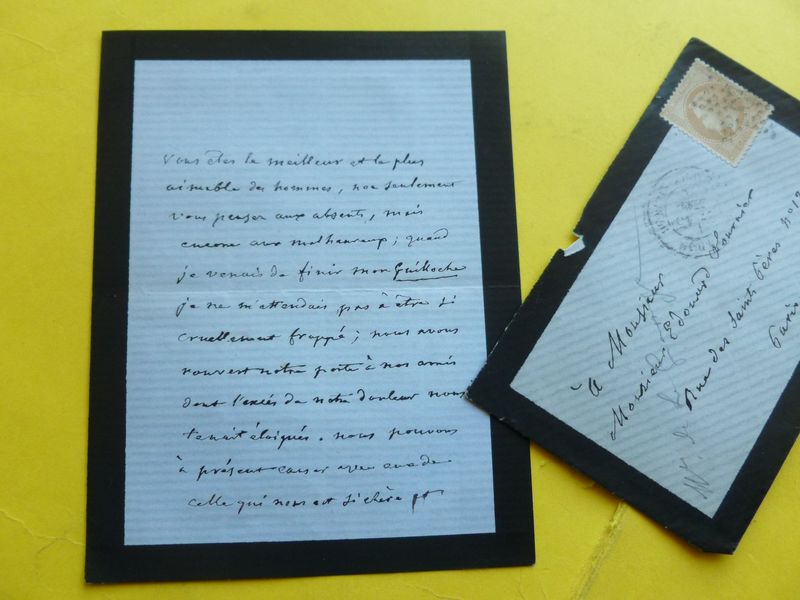 Vous êtes le meilleur et le plus
aimable des hommes, non seulement
vous pensez aux absents, mais
encore aux malheureux ; quand
je venais de finir mon Guilloche
je ne m'attendais pas à être si
cruellement frappé ; nous avons
rouvert notre porte à nos amis
dont l'excès de notre douleur nous
tenait éloignés. nous pouvons
à présent causer avec eux de
celle qui nous est si chère et
à Monsieur
Monsieur Edouard Fournier
Rue des Saints Pères n°
Paris